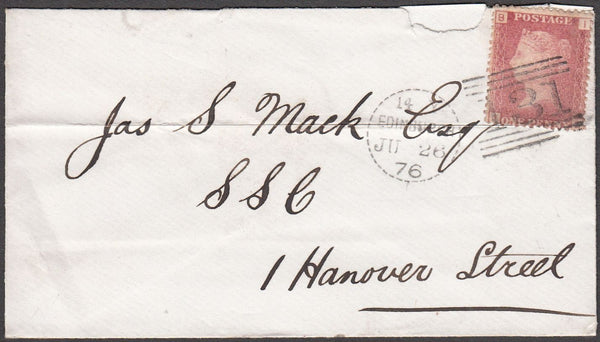 B I
POSTAGE
131
ONE PENNY
14
EDINBURGH
JU 26
76
Jas S Mack Esq
SSC
1 Hanover Street